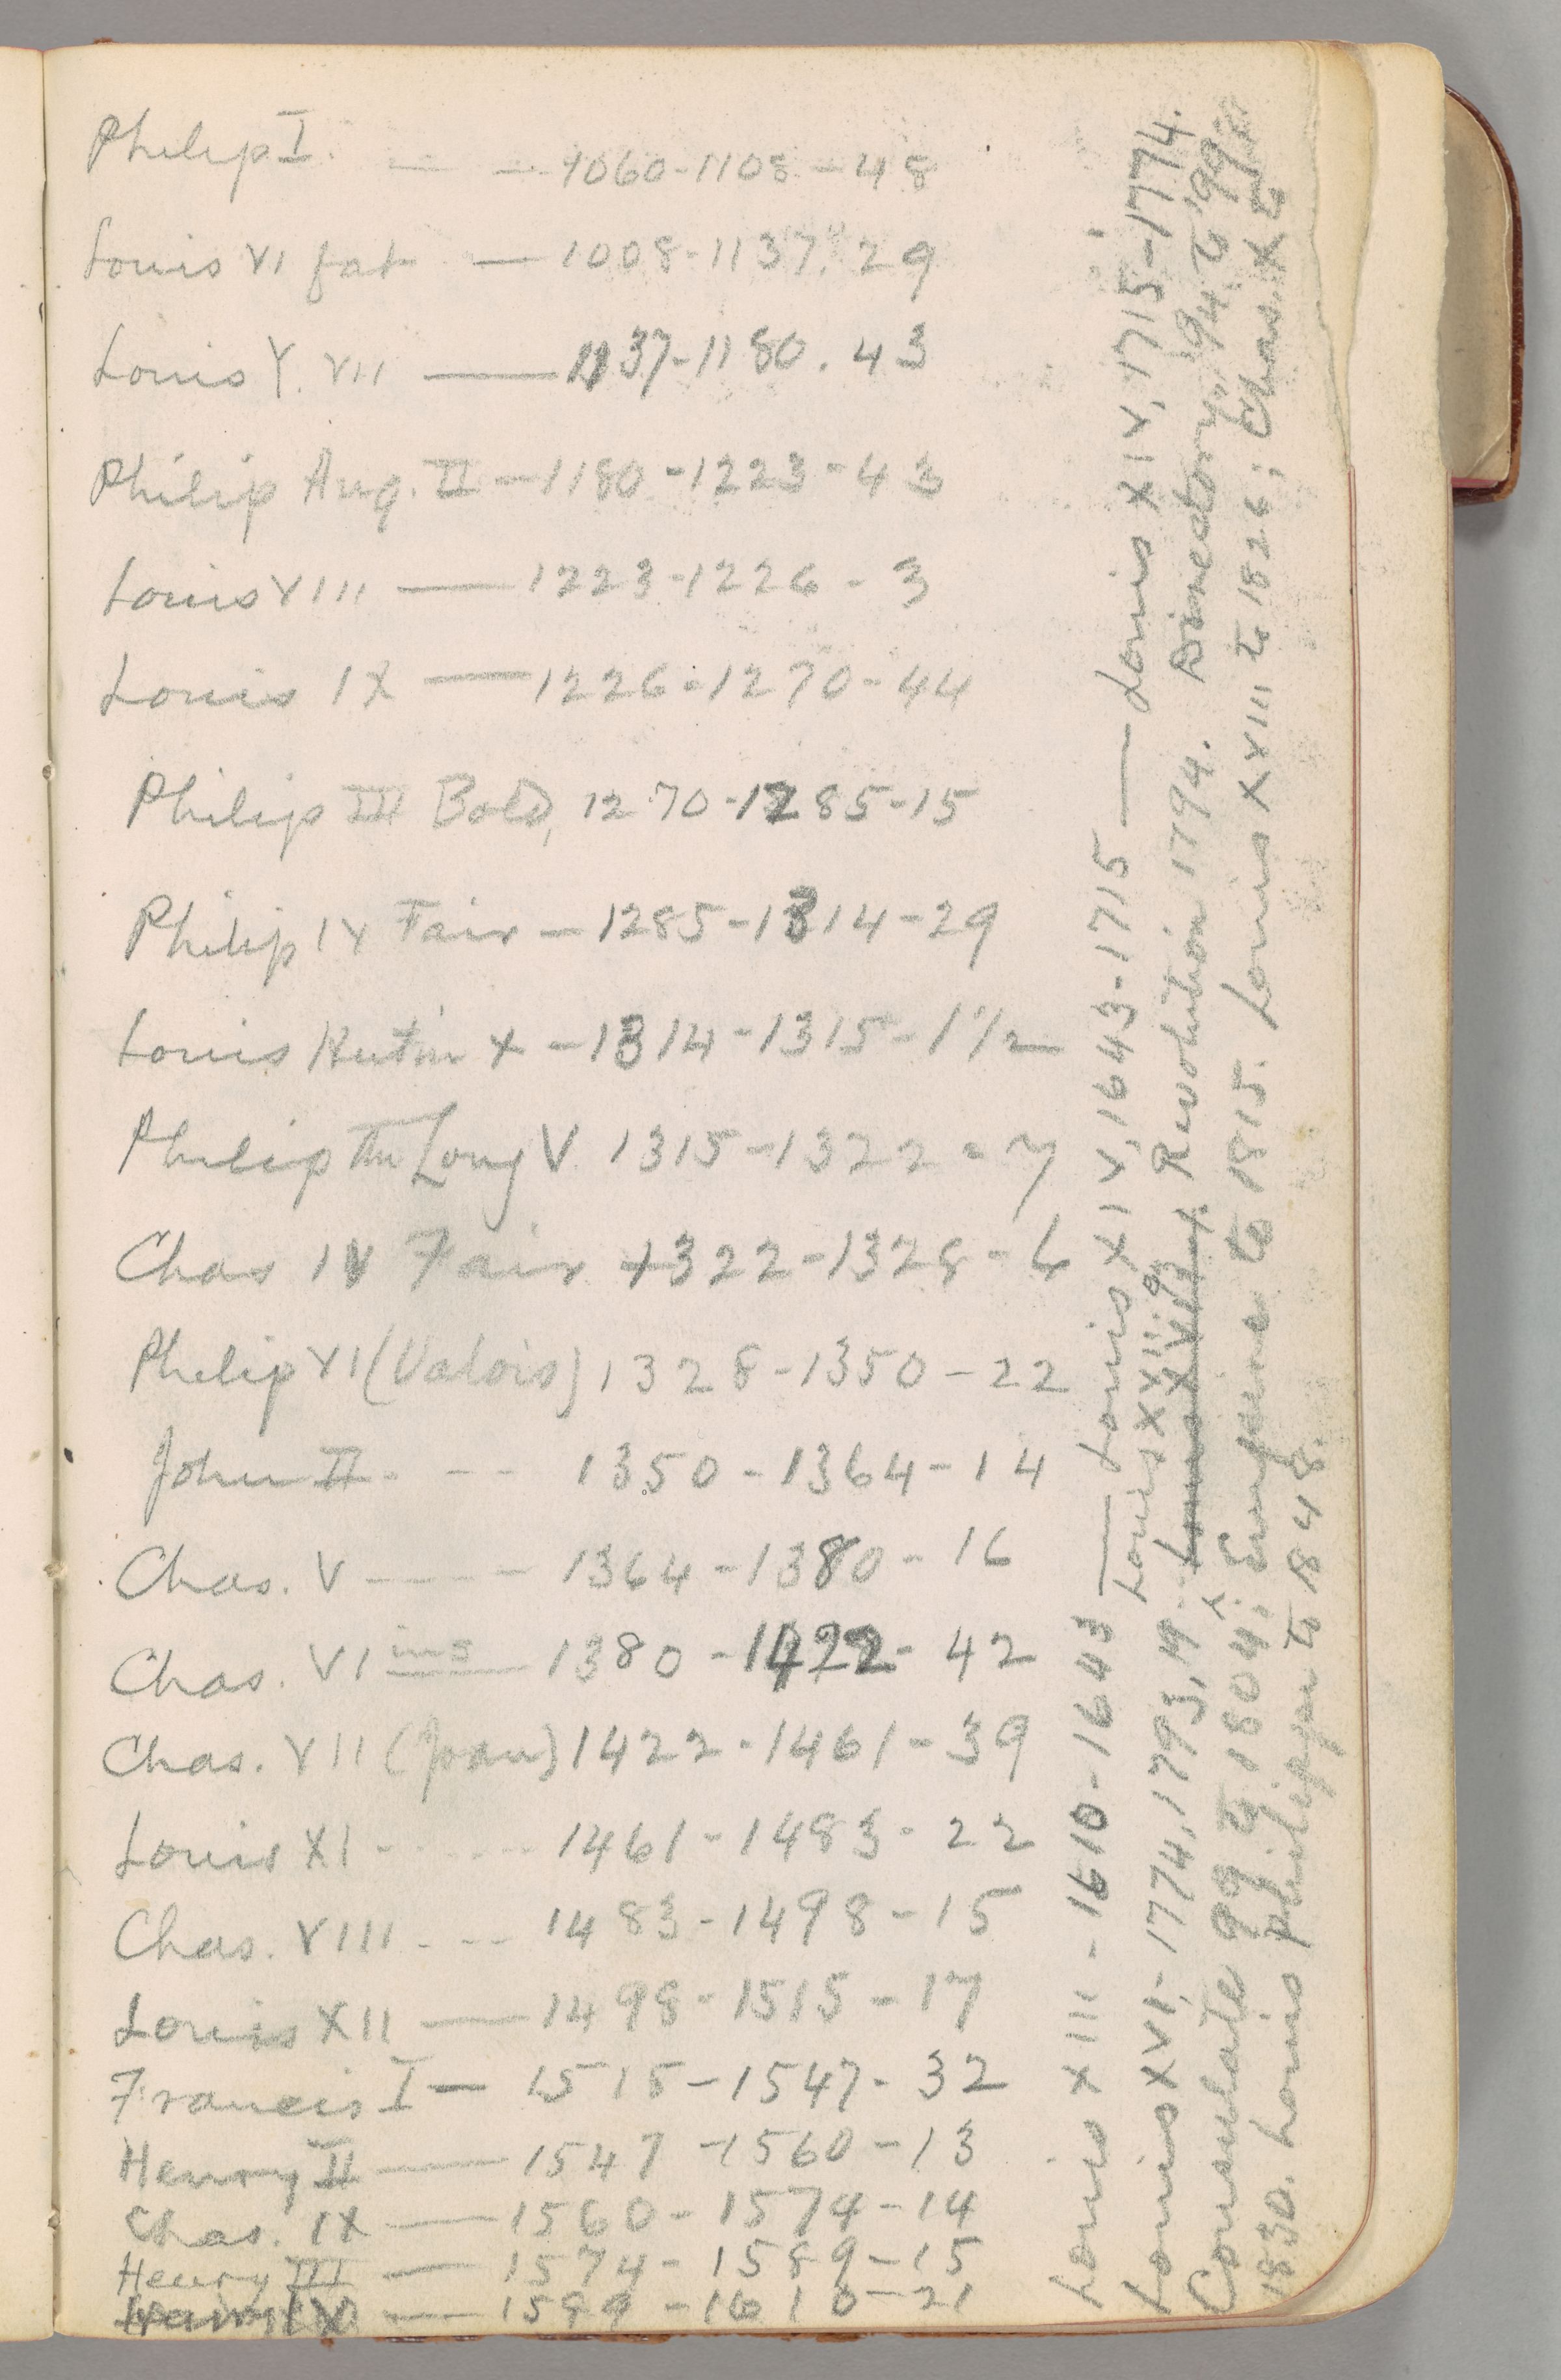 Philip I. — — 1060-1108 - 48
Louis VI fat — 1008-1137. 29
Louis V. VII — 1137-1180. 43
Philip Aug. II — 1180-1223-43
Louis VIII — 1223-1226 - 3
Louis IX — 1226-1270-44
Philip III Bold, 1270-1285-15
Philip IV Fair — 1285-1314-29
Louis Hutin X — 1314-1315-1 1/2
Philip the Long V. 1315-1322 = 7
Chas IV Fair 1322-1328-6
Philip VI (Valois) 1328-1350-22
John II. - - 1350-1364-14
Chas. V ---- 1364-1380-16
Chas. VI ins 1380-1422-42
Chas. VII (Joan) 1422-1461-39
Louis XI ----- 1461-1483-22
Chas. VIII --- 1483-1498-15
Louis XII — 1498-1515-17
Francis I — 1515-1547-32
Henry II — 1547-1560-13
Chas. IX — 1560-1574-14
Henry III — 1574-1589-15
Henry IV — 1589-1610-21
Louis XIII - 1610-1643 — Louis XIV, 1643-1715 — Louis XIV, 1715-1774.
Louis XVII. 95
Louis XVI, 1774, 1793, 19. Louis XVIII Revolution 1794. Directory, '94 to '99
Consulate 99 to 1804; Empire to 1815. Louis XVIII to 1824; Chas. X to
1830. Louis Philippe to 1848.